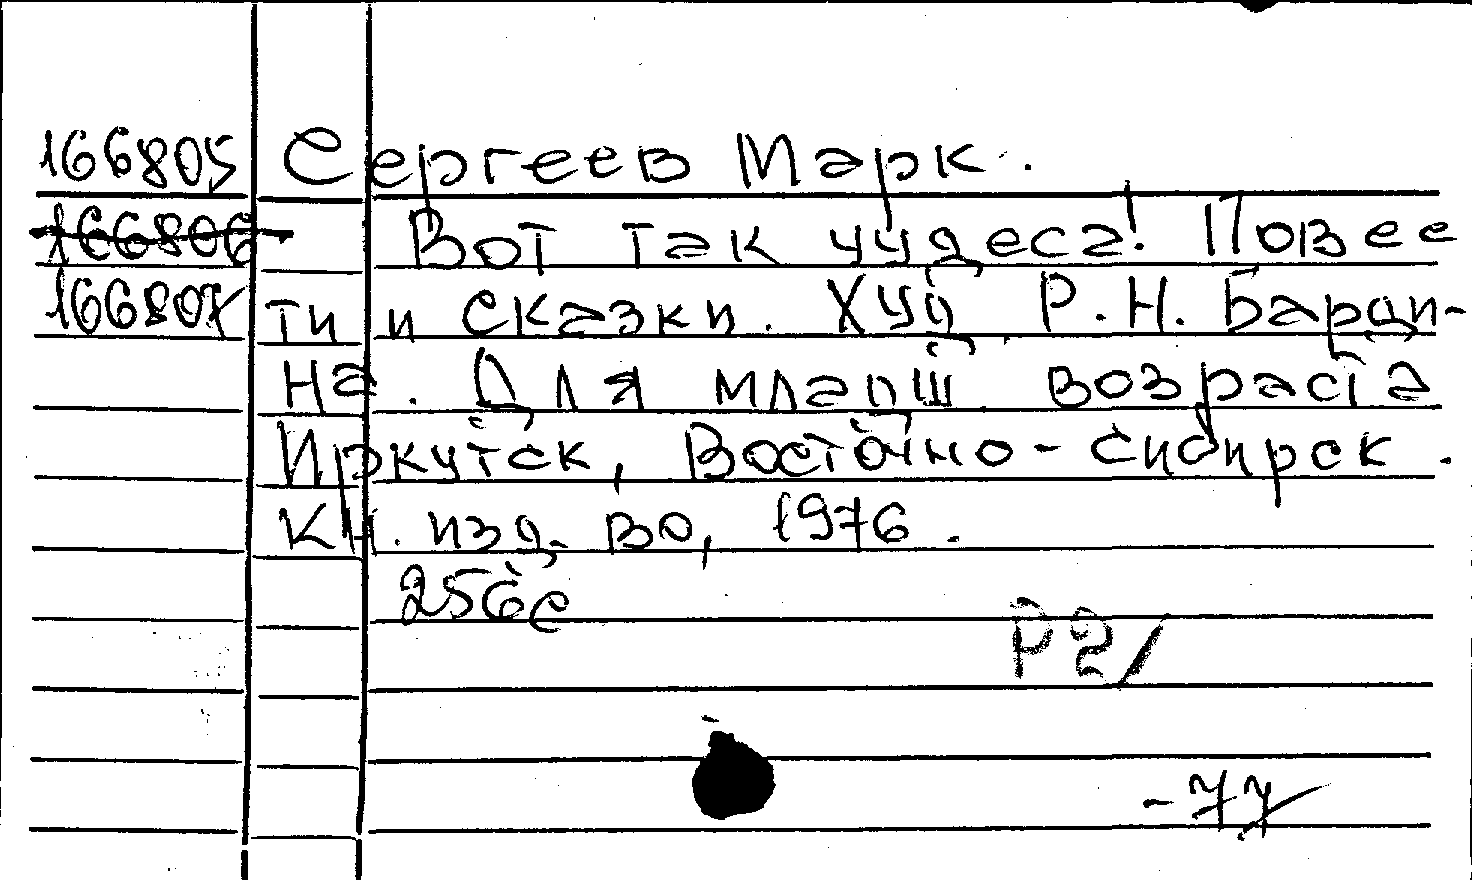 166805 Сергеев Марк.
166806 Вот так чудеса! Повес
166807 ти и сказки. Худ Р.Н. Барди-
на. Для младш возраста
Иркутск, Восточно-сибирск.
кн. изд-во, 1976.
256с
Р2/
-77